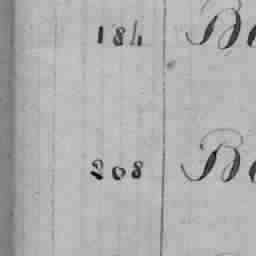 184 Be
208 Be